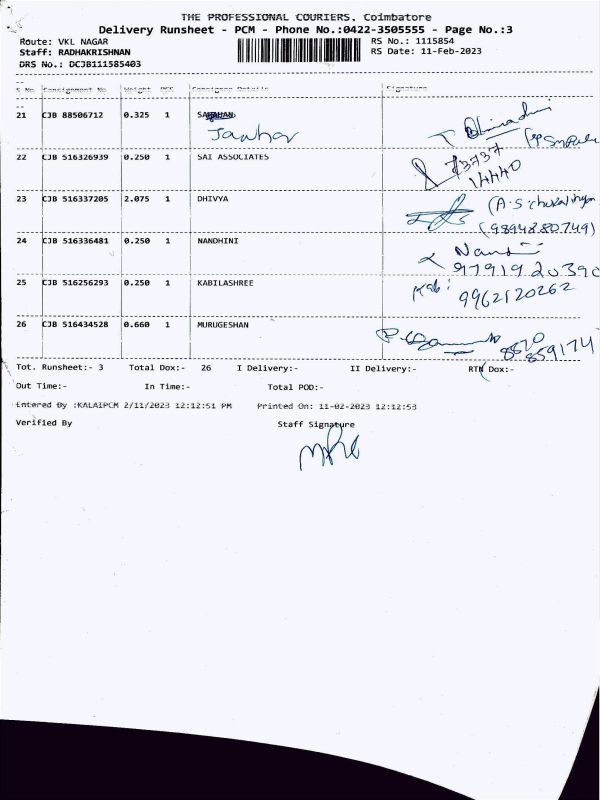 THE PROFESSIONAL COURIERS. Coimbatore
Delivery Runsheet - PCM - Phone No.:0422-3505555 - Page No.:3
Route: VKL NAGAR
RS No.: 1115854
Staff: RADHAKRISHNAN
RS Date: 11-Feb-2023
DRS No.: DCJB111585403
S No. Consignment No Weight PCS Consignee Details Signature
21 CJB 88506712 0.325 1
Jawhar
22 CJB 516326939 0.250 1 SAI ASSOCIATES
73737
14440
23 CJB 516337205 2.075 1 DHIVYA
(9894880749)
24 CJB 516336481 0.250 1 NANDHINI
25 CJB 516256293 0.250 1 KABILASHREE
Kabi
9962120262
26 CJB 516434528 0.660 1 MURUGESHAN
859174
Tot. Runsheet:- 3 Total Dox:- 26 I Delivery:- II Delivery:- RTN Dox:-
Out Time:- In Time:- Total POD:-
Entered By :KALAIPCM 2/11/2023 12:12:51 PM Printed On: 11-02-2023 12:12:53
Verified By Staff Signature